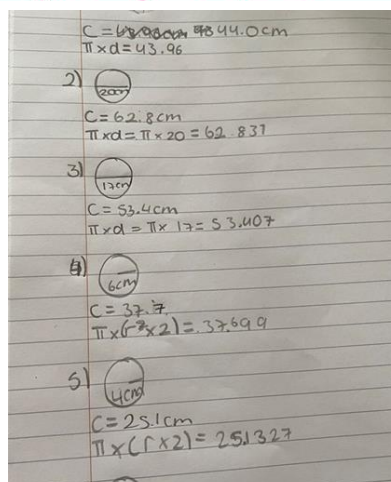 C = 44.0cm
π×d = 43.96
2)
20cm
C = 62.8cm
π×d = π × 20 = 62.831
3)
17cm
C = 53.4cm
π×d = π× 17 = 53.407
4)
6cm
C = 37.7
π×(r×2) = 37.699
5)
4cm
C = 25.1cm
π×(r×2) = 25.1327